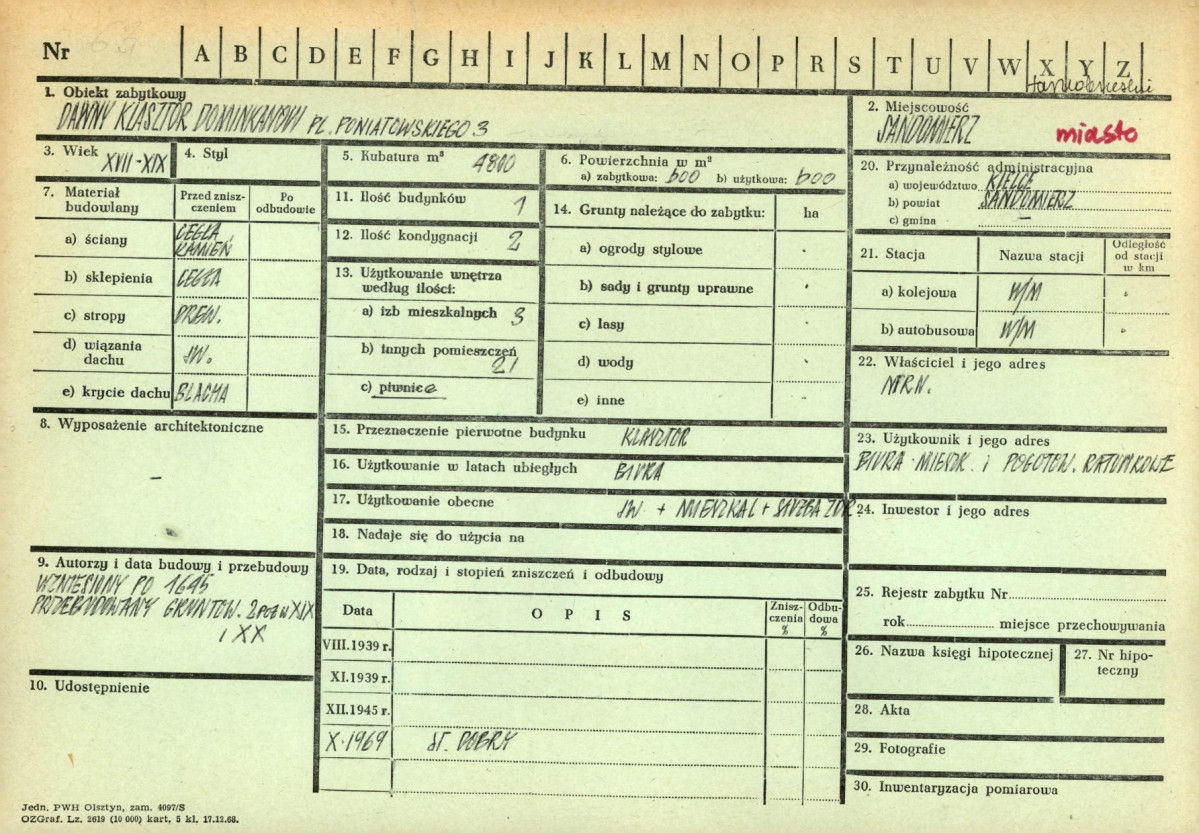 Nr
A B C D E F G H I J K L M N O P R S T U V W X Y Z
1. Obiekt zabytkowy
DAWNY KLASZTOR DOMINIKANÓW PL. PONIATOWSKIEGO 3
2. Miejscowość
SANDOMIERZ miasto
3. Wiek XVII-XIX
4. Styl
5. Kubatura m³ 4800
6. Powierzchnia w m²
a) zabytkowa: 600 b) użytkowa: 600
20. Przynależność administracyjna
a) województwo KIELCE
b) powiat SANDOMIERZ
c) gmina —
7. Materiał budowlany
Przed zniszczeniem
Po odbudowie
a) ściany CEGŁA, KAMIEŃ
b) sklepienia CEGŁA
c) stropy DREW.
d) wiązania dachu JW.
e) krycie dachu BLACHA
11. Ilość budynków 1
12. Ilość kondygnacji 2
13. Użytkowanie wnętrza
według ilości:
a) izb mieszkalnych 3
b) innych pomieszczeń
21
c) piwnice
14. Grunty należące do zabytku: ha
a) ogrody stylowe
b) sady i grunty uprawne
c) lasy
d) wody
e) inne
21. Stacja
Nazwa stacji
Odległość
od stacji
w km
a) kolejowa W/M
b) autobusowa W/M
22. Właściciel i jego adres
MRN.
8. Wyposażenie architektoniczne
—
15. Przeznaczenie pierwotne budynku KLASZTOR
16. Użytkowanie w latach ubiegłych BIURA
17. Użytkowanie obecne JW + MIESZKAL + SŁUŻBA ZDR.
18. Nadaje się do użycia na
23. Użytkownik i jego adres
BIURA MIESZK. i POGOTOW. RATUNKOWE
24. Inwestor i jego adres
9. Autorzy i data budowy i przebudowy
WZNIESIONY PO 1645
PRZEBUDOWANY GRUNTOW. W XIX
i XX
10. Udostępnienie
19. Data, rodzaj i stopień zniszczeń i odbudowy
Data
OPIS
Zniszczenia
%
Odbudowa
%
VIII.1939 r.
XI.1939 r.
XII.1945 r.
X.1969 ST. DOBRY
25. Rejestr zabytku Nr
rok miejsce przechowywania
26. Nazwa księgi hipotecznej
27. Nr hipoteczny
28. Akta
29. Fotografie
30. Inwentaryzacja pomiarowa
Jedn. PWH Olsztyn, zam. 4097/S
OZGraf. Lz. 2619 (10 000) kart, 5 kl. 17.12.68.